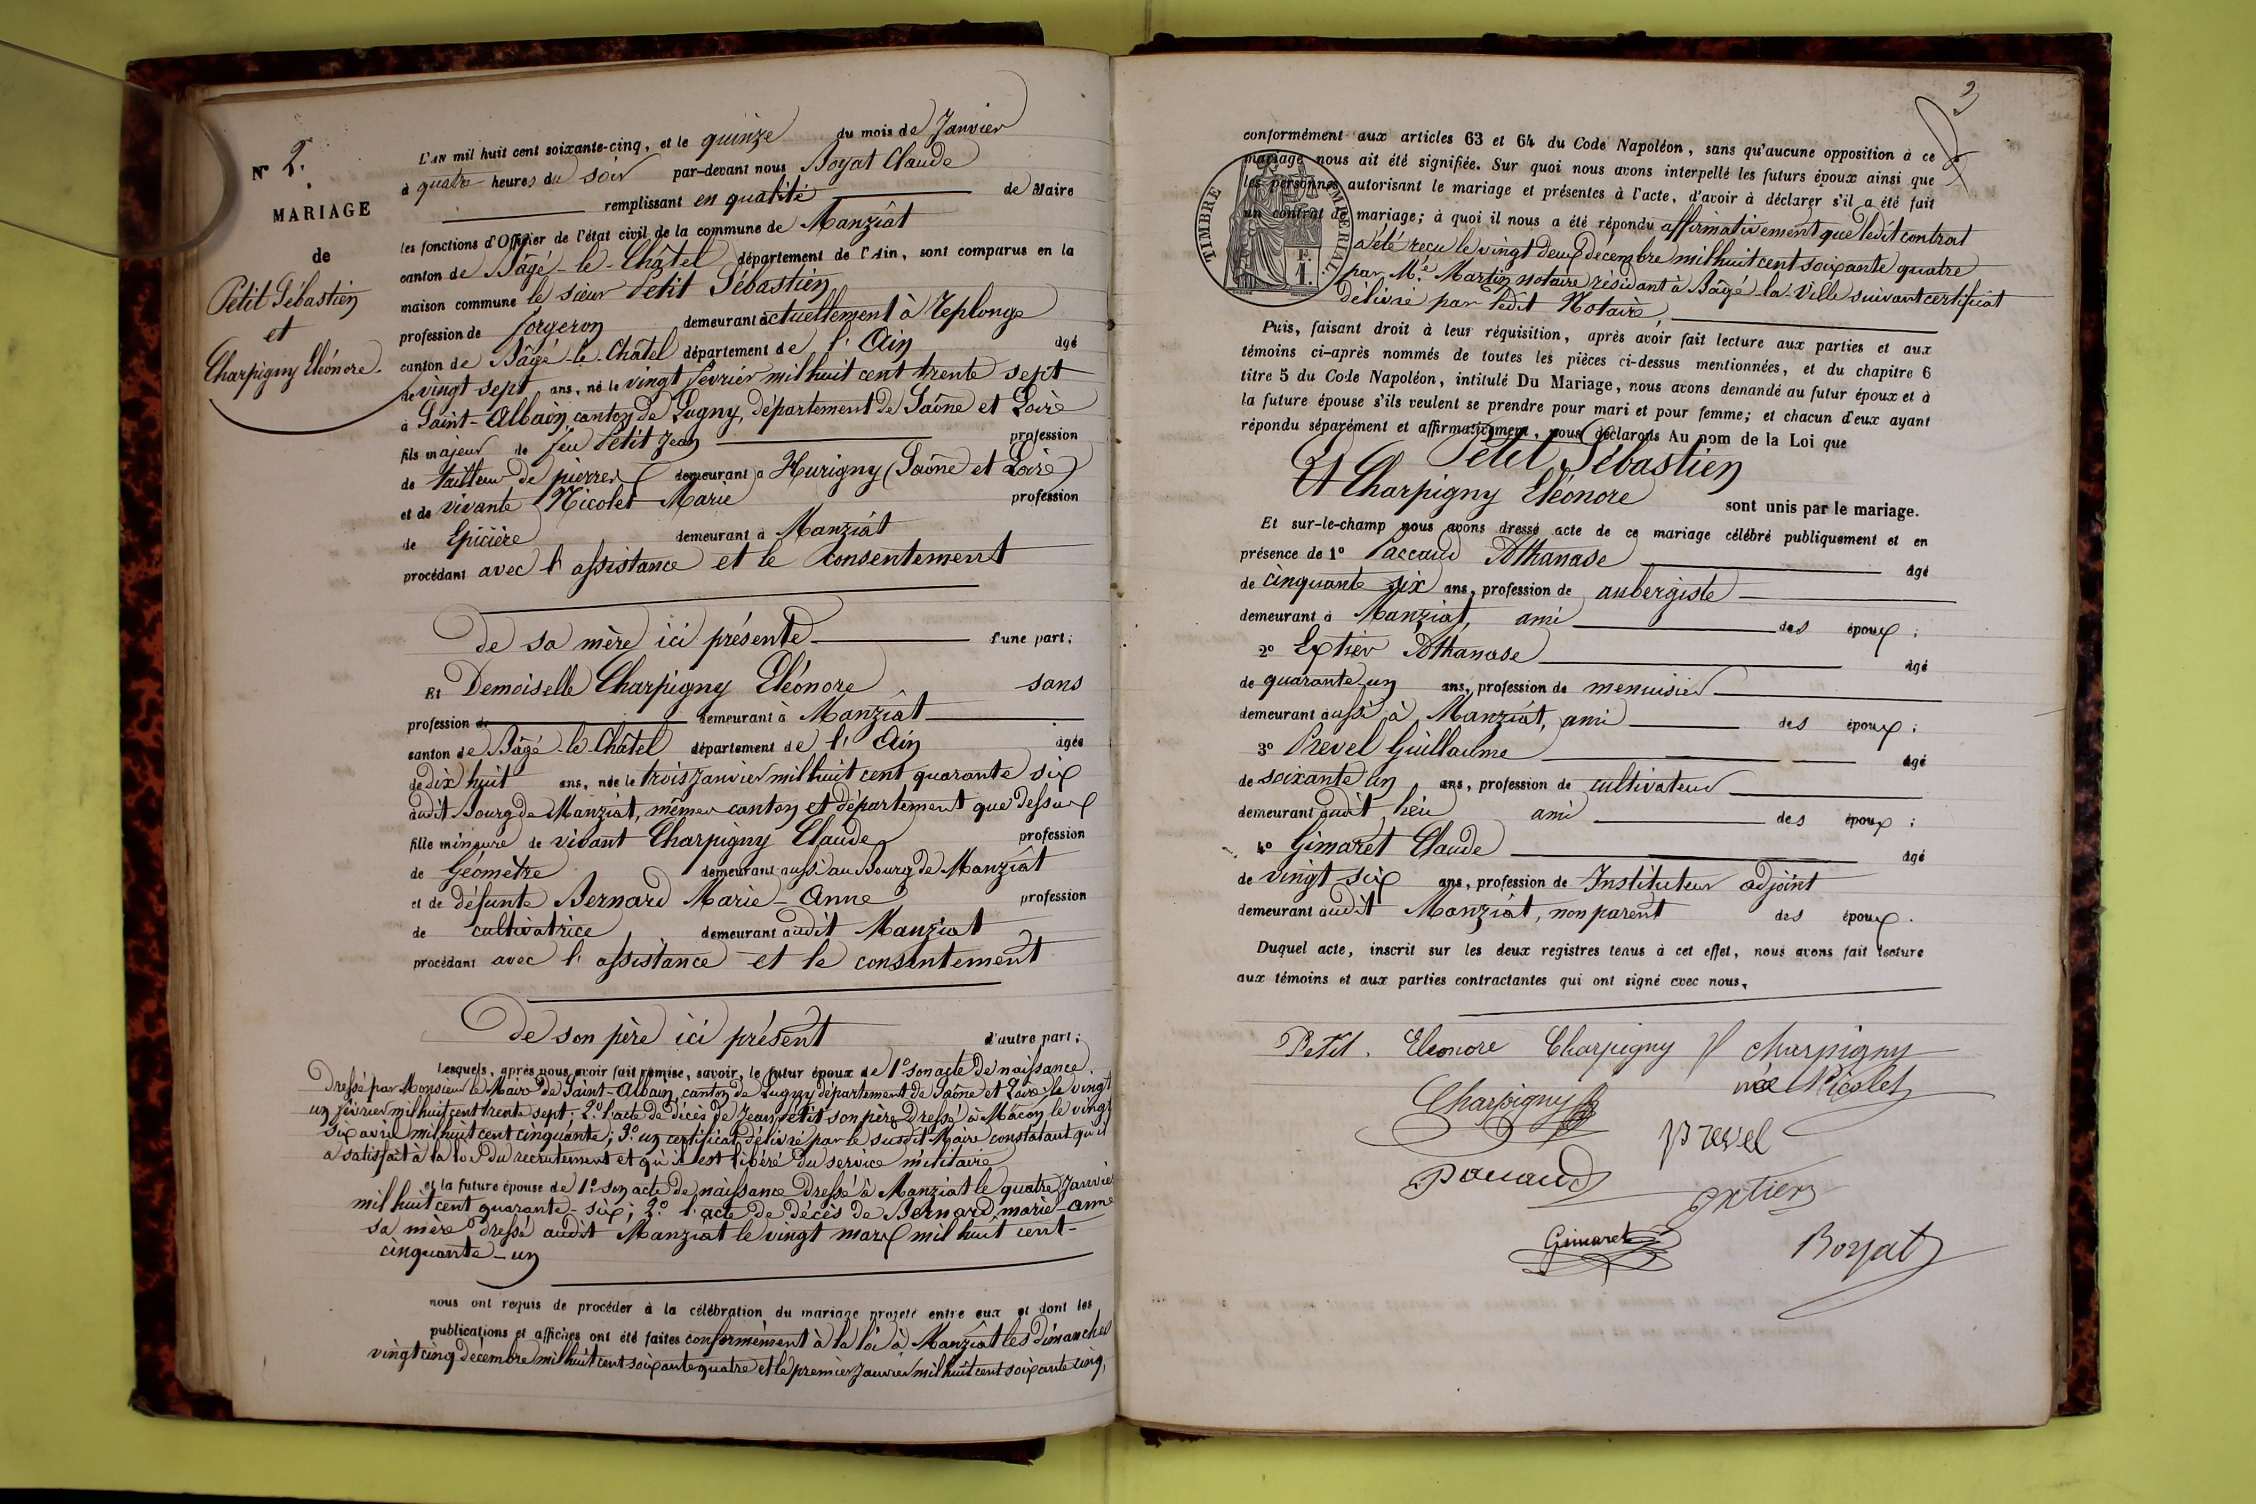 N° 2.
MARIAGE
de
Petit Sébastien
et
Charpigny Eléonore.
L'AN mil huit cent soixante-cinq, et le quinze du mois de Janvier
à quatre heures du soir par-devant nous Boyat Claude
remplissant en qualité de Maire
les fonctions d'Officier de l'état civil de la commune de Manziat
canton de Bâgé-le-Châtel département de l'Ain, sont comparus en la
maison commune le sieur Petit Sébastien
profession de forgeron demeurant actuellement à Replonge
canton de Bâgé-le-Châtel département de l'Ain âgé
de vingt sept ans, né le vingt février mil huit cent trente sept
à Saint-Albain, canton de Lugny, département de Saône et Loire
fils majeur de feu Petit Jean profession
de tailleur de pierres demeurant à Hurigny (Saône et Loire)
et de vivante Nicolet Marie profession
de Epicière demeurant à Manziat
procédant avec l'assistance et le consentement
de sa mère ici présente d'une part;
Et Demoiselle Charpigny Eléonore sans
profession de demeurant à Manziat
canton de Bâgé-le-Châtel département de l'Ain âgée
de dix huit ans, née le trois Janvier mil huit cent quarante six
audit Bourg de Manziat, mêmes canton et département que dessus
fille mineure de vivant Charpigny Claude profession
de Géomètre demeurant aussi au Bourg de Manziat
et de défunte Bernard Marie-Anne profession
de cultivatrice demeurant audit Manziat
procédant avec l'assistance et le consentement
de son père ici présent d'autre part;
Lesquels, après nous avoir fait remise, savoir, le futur époux de 1° son acte de naissance
dressé par Monsieur le Maire de Saint-Albain, canton de Lugny département de Saône et Loire le vingt
un février mil huit cent trente sept; 2° l'acte de décès de Jean Petit son père dressé à Mâcon le vingt
six avril mil huit cent cinquante; 3° un certificat délivré par le susdit Maire constatant qu'il
a satisfait à la loi du recrutement et qu'il est libéré du service militaire
et la future épouse de 1° son acte de naissance dressé à Manziat le quatre Janvier
mil huit cent quarante-six; 2° l'acte de décès de Bernard marie-anne
sa mère dressé audit Manziat le vingt mars mil huit cent-
cinquante-un
nous ont requis de procéder à la célébration du mariage projeté entre eux et dont les
publications et affiches ont été faites conformément à la loi à Manziat les dimanches
vingt cinq décembre mil huit cent soixante quatre et le premier Janvier mil huit cent soixante cinq,
2
conformément aux articles 63 et 64 du Code Napoléon, sans qu'aucune opposition à ce
mariage nous ait été signifiée. Sur quoi nous avons interpellé les futurs époux ainsi que
les personnes autorisant le mariage et présentes à l'acte, d'avoir à déclarer s'il a été fait
un contrat de mariage; à quoi il nous a été répondu affirmativement que ledit contrat
a été reçu le vingt deux décembre mil huit cent soixante quatre
par Me Martin notaire résidant à Bâgé-la-Ville suivant certificat
délivré par ledit Notaire,
TIMBRE IMPÉRIAL.
1 F.
Puis, faisant droit à leur réquisition, après avoir fait lecture aux parties et aux
témoins ci-après nommés de toutes les pièces ci-dessus mentionnées, et du chapitre 6
titre 5 du Code Napoléon, intitulé Du Mariage, nous avons demandé au futur époux et à
la future épouse s'ils veulent se prendre pour mari et pour femme; et chacun d'eux ayant
répondu séparément et affirmativement, nous déclarons Au nom de la Loi que
Petit Sébastien
Et Charpigny Eléonore sont unis par le mariage.
Et sur-le-champ nous avons dressé acte de ce mariage célébré publiquement et en
présence de 1° Paccaud Athanase âgé
de cinquante six ans, profession de aubergiste
demeurant à Manziat, ami des époux;
2° Extier Athanase âgé
de quarante-un ans, profession de menuisier
demeurant aussi à Manziat, ami des époux;
3° Prevel Guillaume âgé
de soixante un ans, profession de cultivateur
demeurant audit lieu ami des époux;
4° Gimaret Claude âgé
de vingt six ans, profession de Instituteur adjoint
demeurant audit Manziat, non parent des époux.
Duquel acte, inscrit sur les deux registres tenus à cet effet, nous avons fait lecture
aux témoins et aux parties contractantes qui ont signé avec nous.
Petit. Eleonore Charpigny charpigny
née Nicolet
Charpigny
prevel
Pacaud
Extier
Gimaret
Boyat